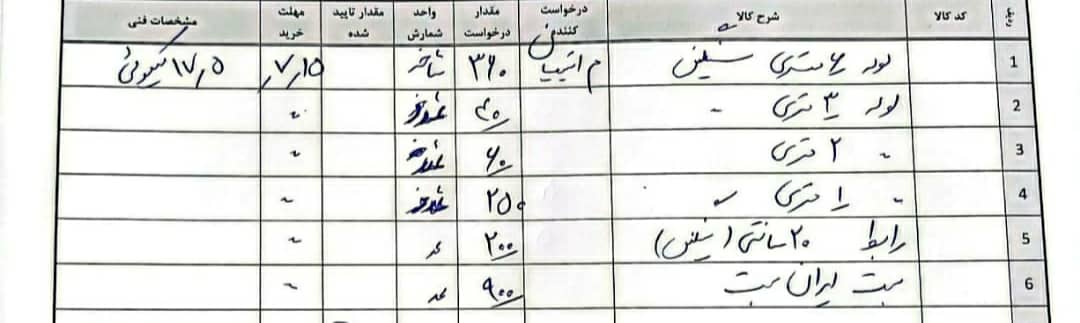 ردیف کد کالا شرح کالا درخواست کننده مقدار درخواست واحد شمارش مقدار تایید شده مهلت خرید مشخصات فنی
1 لوله ۶ متری سنگین ۳۶۰ شاخه ۷٫۱۵ ۱۷٫۵ کیلوئی
2 لوله ۳ متری 〃 ۴۰ 〃
3 〃 ۲ متری ۶۰ 〃
4 〃 ۱ متری 〃 ۲۵۰ 〃
5 رابط ۲۰ سانتی (سنگین) ۲۰۰ عدد 〃
6 بست ایران بست ۹۰۰ عدد 〃